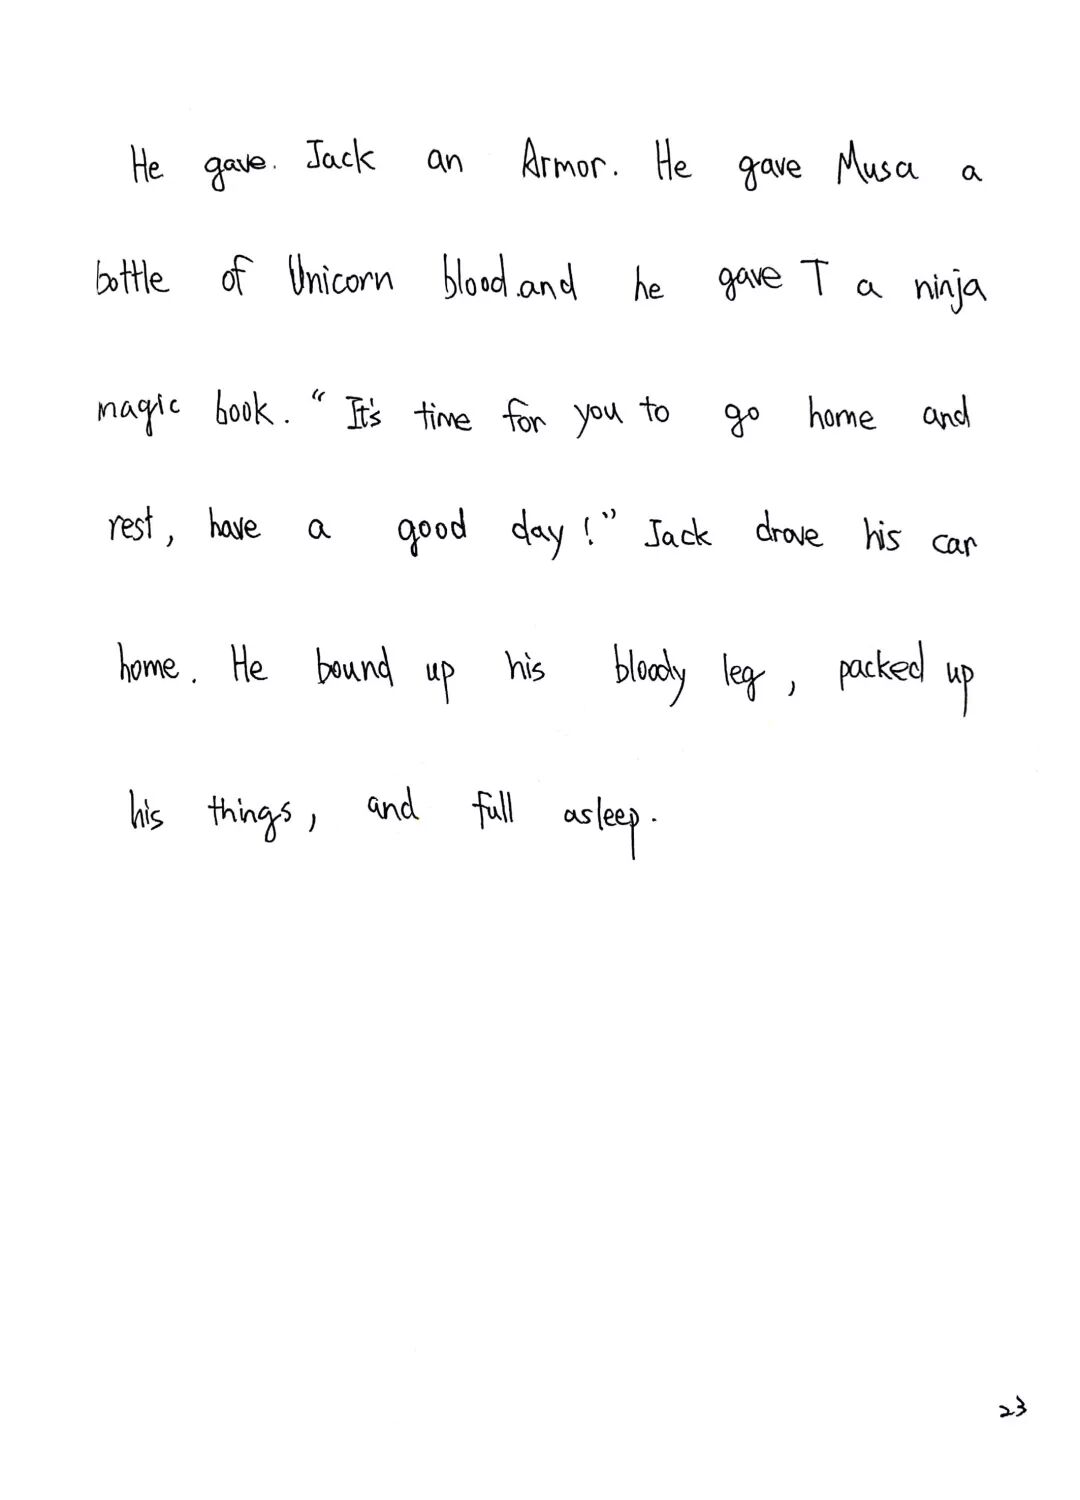 He gave. Jack an Armor. He gave Musa a
bottle of Unicorn blood.and he gave T a ninja
magic book. “It's time for you to go home and
rest, have a good day!” Jack drove his car
home. He bound up his bloody leg, packed up
his things, and full asleep.
23